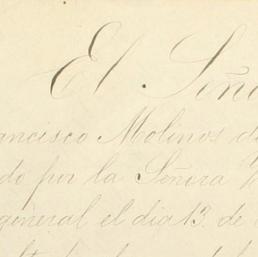 El Seño
ancisco Molinos d
do por la Señora
general el dia 13 de